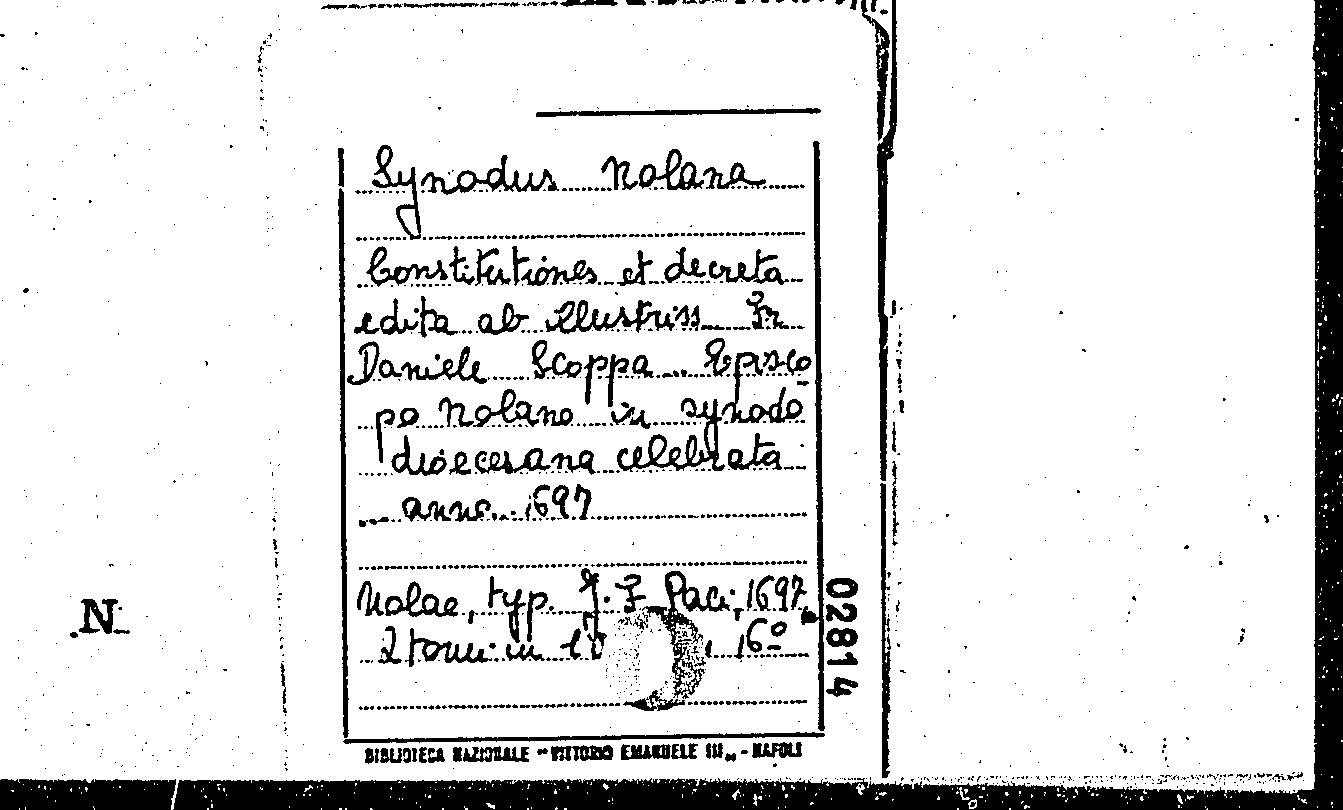 Synodus Nolana
Constitutiones et decreta
edita ab illustriss. Fr
Daniele Scoppa ... Episco
po Nolano in synodo
dioecesana celebrata
... anno... 1697
Nolae, typ. J. F. Paci, 1697.
2 tomi in 1 v 16º
02814
.N.
BIBLIOTECA NAZIONALE "VITTORIO EMANUELE III„ - NAPOLI